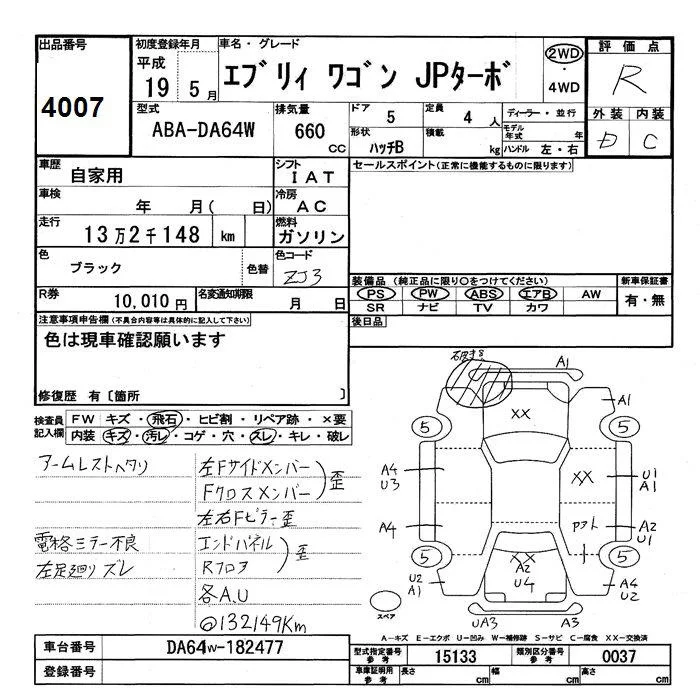 出品番号
4007
初度登録年月
平成
19 5月
車名・グレード
エブリィ ワゴン JPターボ
2WD
・
4WD
評価点
R
型式
ABA-DA64W
排気量
660
cc
ドア
5
定員
4 人
ディーラー・並行
外装 内装
形状
ハッチB
積載
kg
モデル
年式
年
ハンドル 左・右
D C
車歴
自家用
シフト
I A T
セールスポイント(正常に機能するものに限ります)
車検
年 月( 日)
冷房
A C
走行
13万2千148 km
燃料
ガソリン
色
ブラック
色替
色コード
ZJ3
装備品 (純正品に限り○をつけてください)
新車保証書
PS PW ABS エアB AW
有・無
SR ナビ TV カワ
R券
10,010円
名変通知期限
月 日
後日品
注意事項申告欄(不具合内容等は具体的に記入して下さい)
色は現車確認願います
修復歴 有〔箇所 〕
検査員
記入欄
FW キズ・飛石・ヒビ割・リペア跡・×要
内装 キズ・汚レ・コゲ・穴・スレ・キレ・破レ
アームレストヘタリ
左Fサイドメンバー
Fクロスメンバー
歪
左右Fピラー歪
電格ミラー不良
エンドパネル
左足廻りズレ
Rフロア
歪
各A.U
@132149Km
A1
XX
A1
5
5
A4
U3
XX
U1
A1
A4
アト
A2
U1
5
5
XX
A2
U4
U2
A1
A4
U2
スペア
UA3
A3
A―キズ E―エクボ U―凹み W―補修跡 S―サビ C―腐食 XX―交換済
車台番号
DA64W-182477
型式指定番号
参考
15133
類別区分番号
参考
0037
登録番号
車庫証明用
参考
長さ
cm
幅
cm
高さ
cm